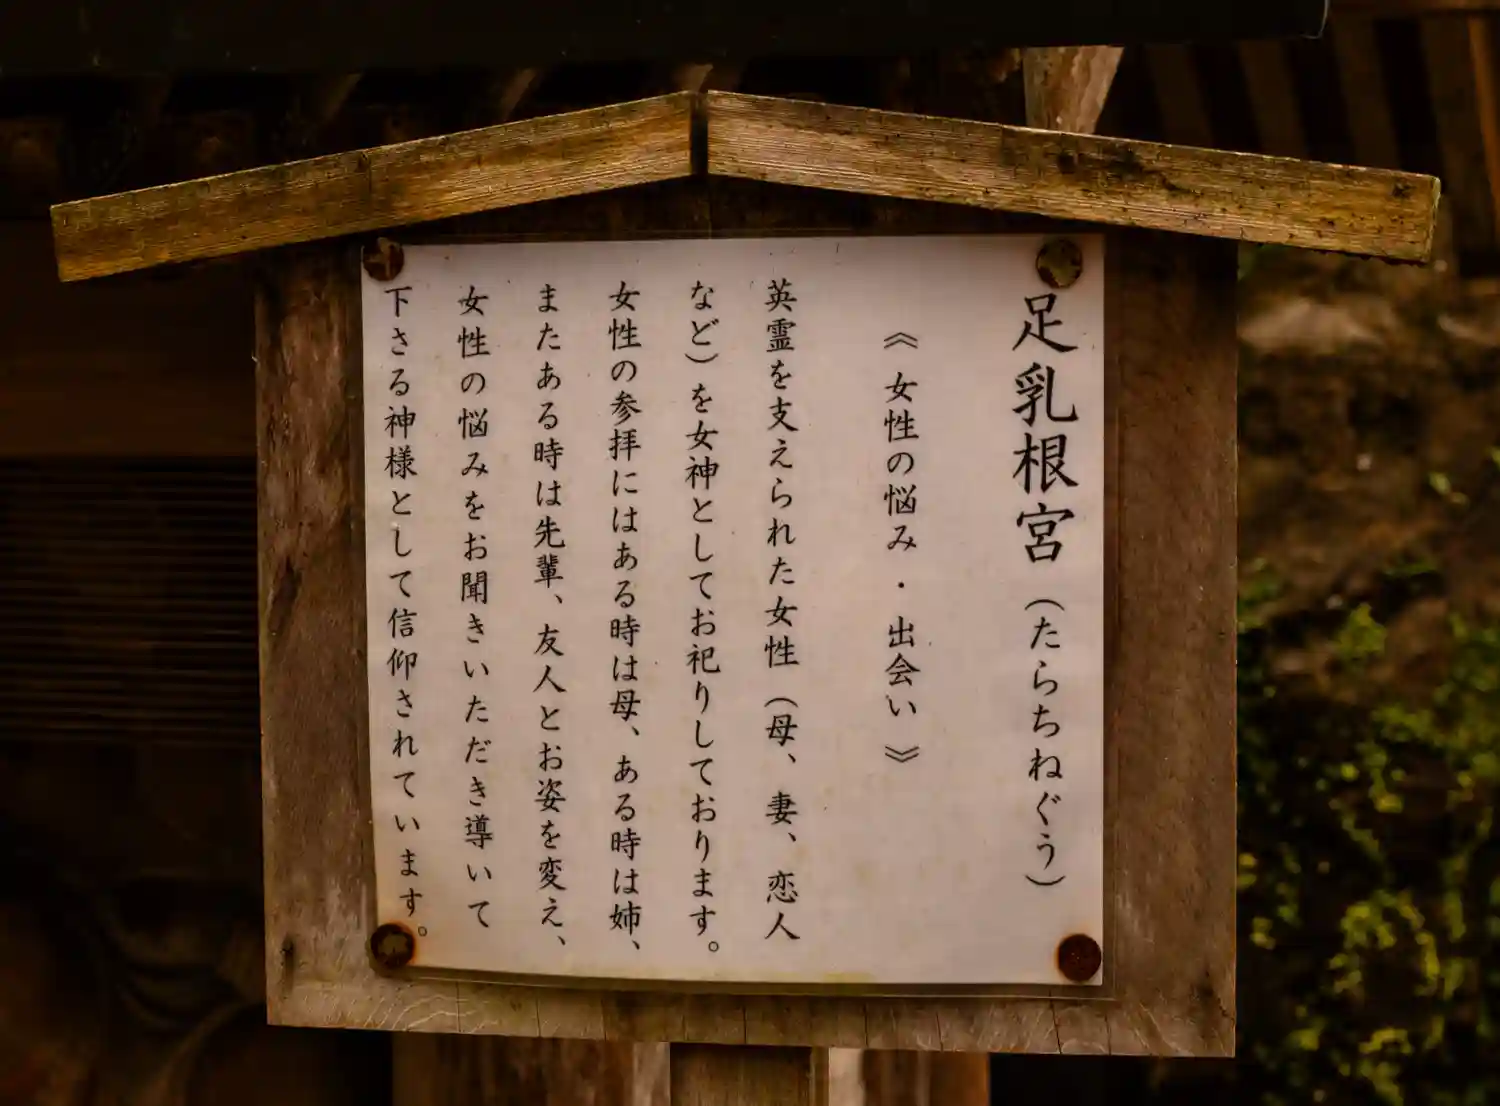 足乳根宮（たらちねぐう）
《 女性の悩み・出会い 》
英霊を支えられた女性（母、妻、恋人
など）を女神としてお祀りしております。
女性の参拝にはある時は母、ある時は姉、
またある時は先輩、友人とお姿を変え、
女性の悩みをお聞きいただき導いて
下さる神様として信仰されています。